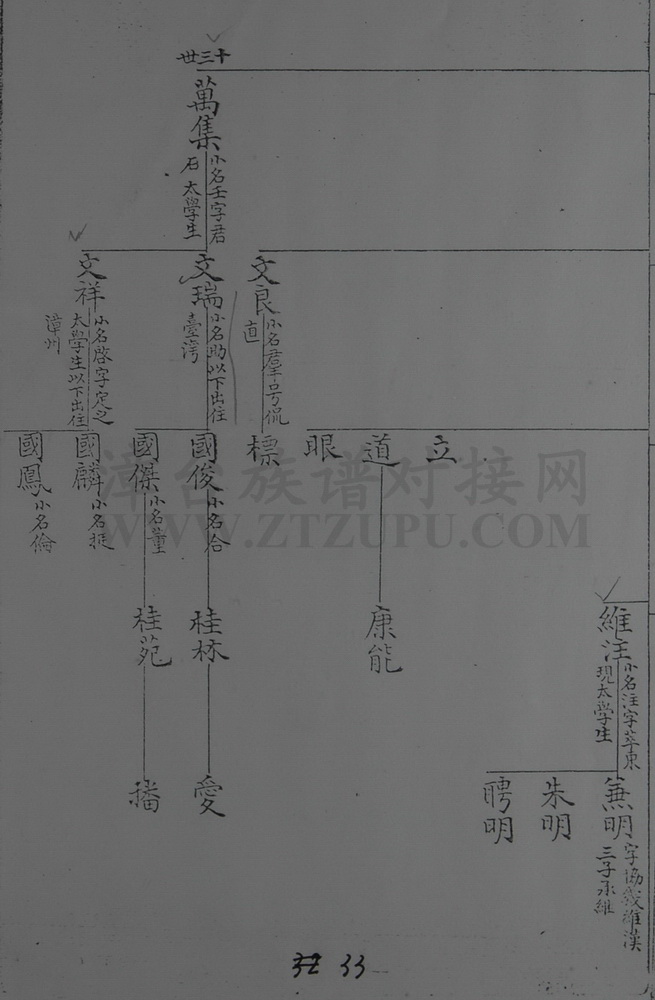 十三世
萬集
小名壬字君
石 太學生
文良
小名羣号侃
直
文瑞
小名助以下出住
臺灣
文祥
小名啓字定之
太學生以下出住
漳州
立
道
眼
標
國俊
小名合
國傑
小名董
國麟
小名挺
國鳳
小名倫
漳台族谱对接网
WWW.ZTZUPU.COM
康能
桂林
桂苑
維注
小名注字萃東
現太學生
愛
播
兼明
字協義維漢
三子承維
朱明
聘明
33